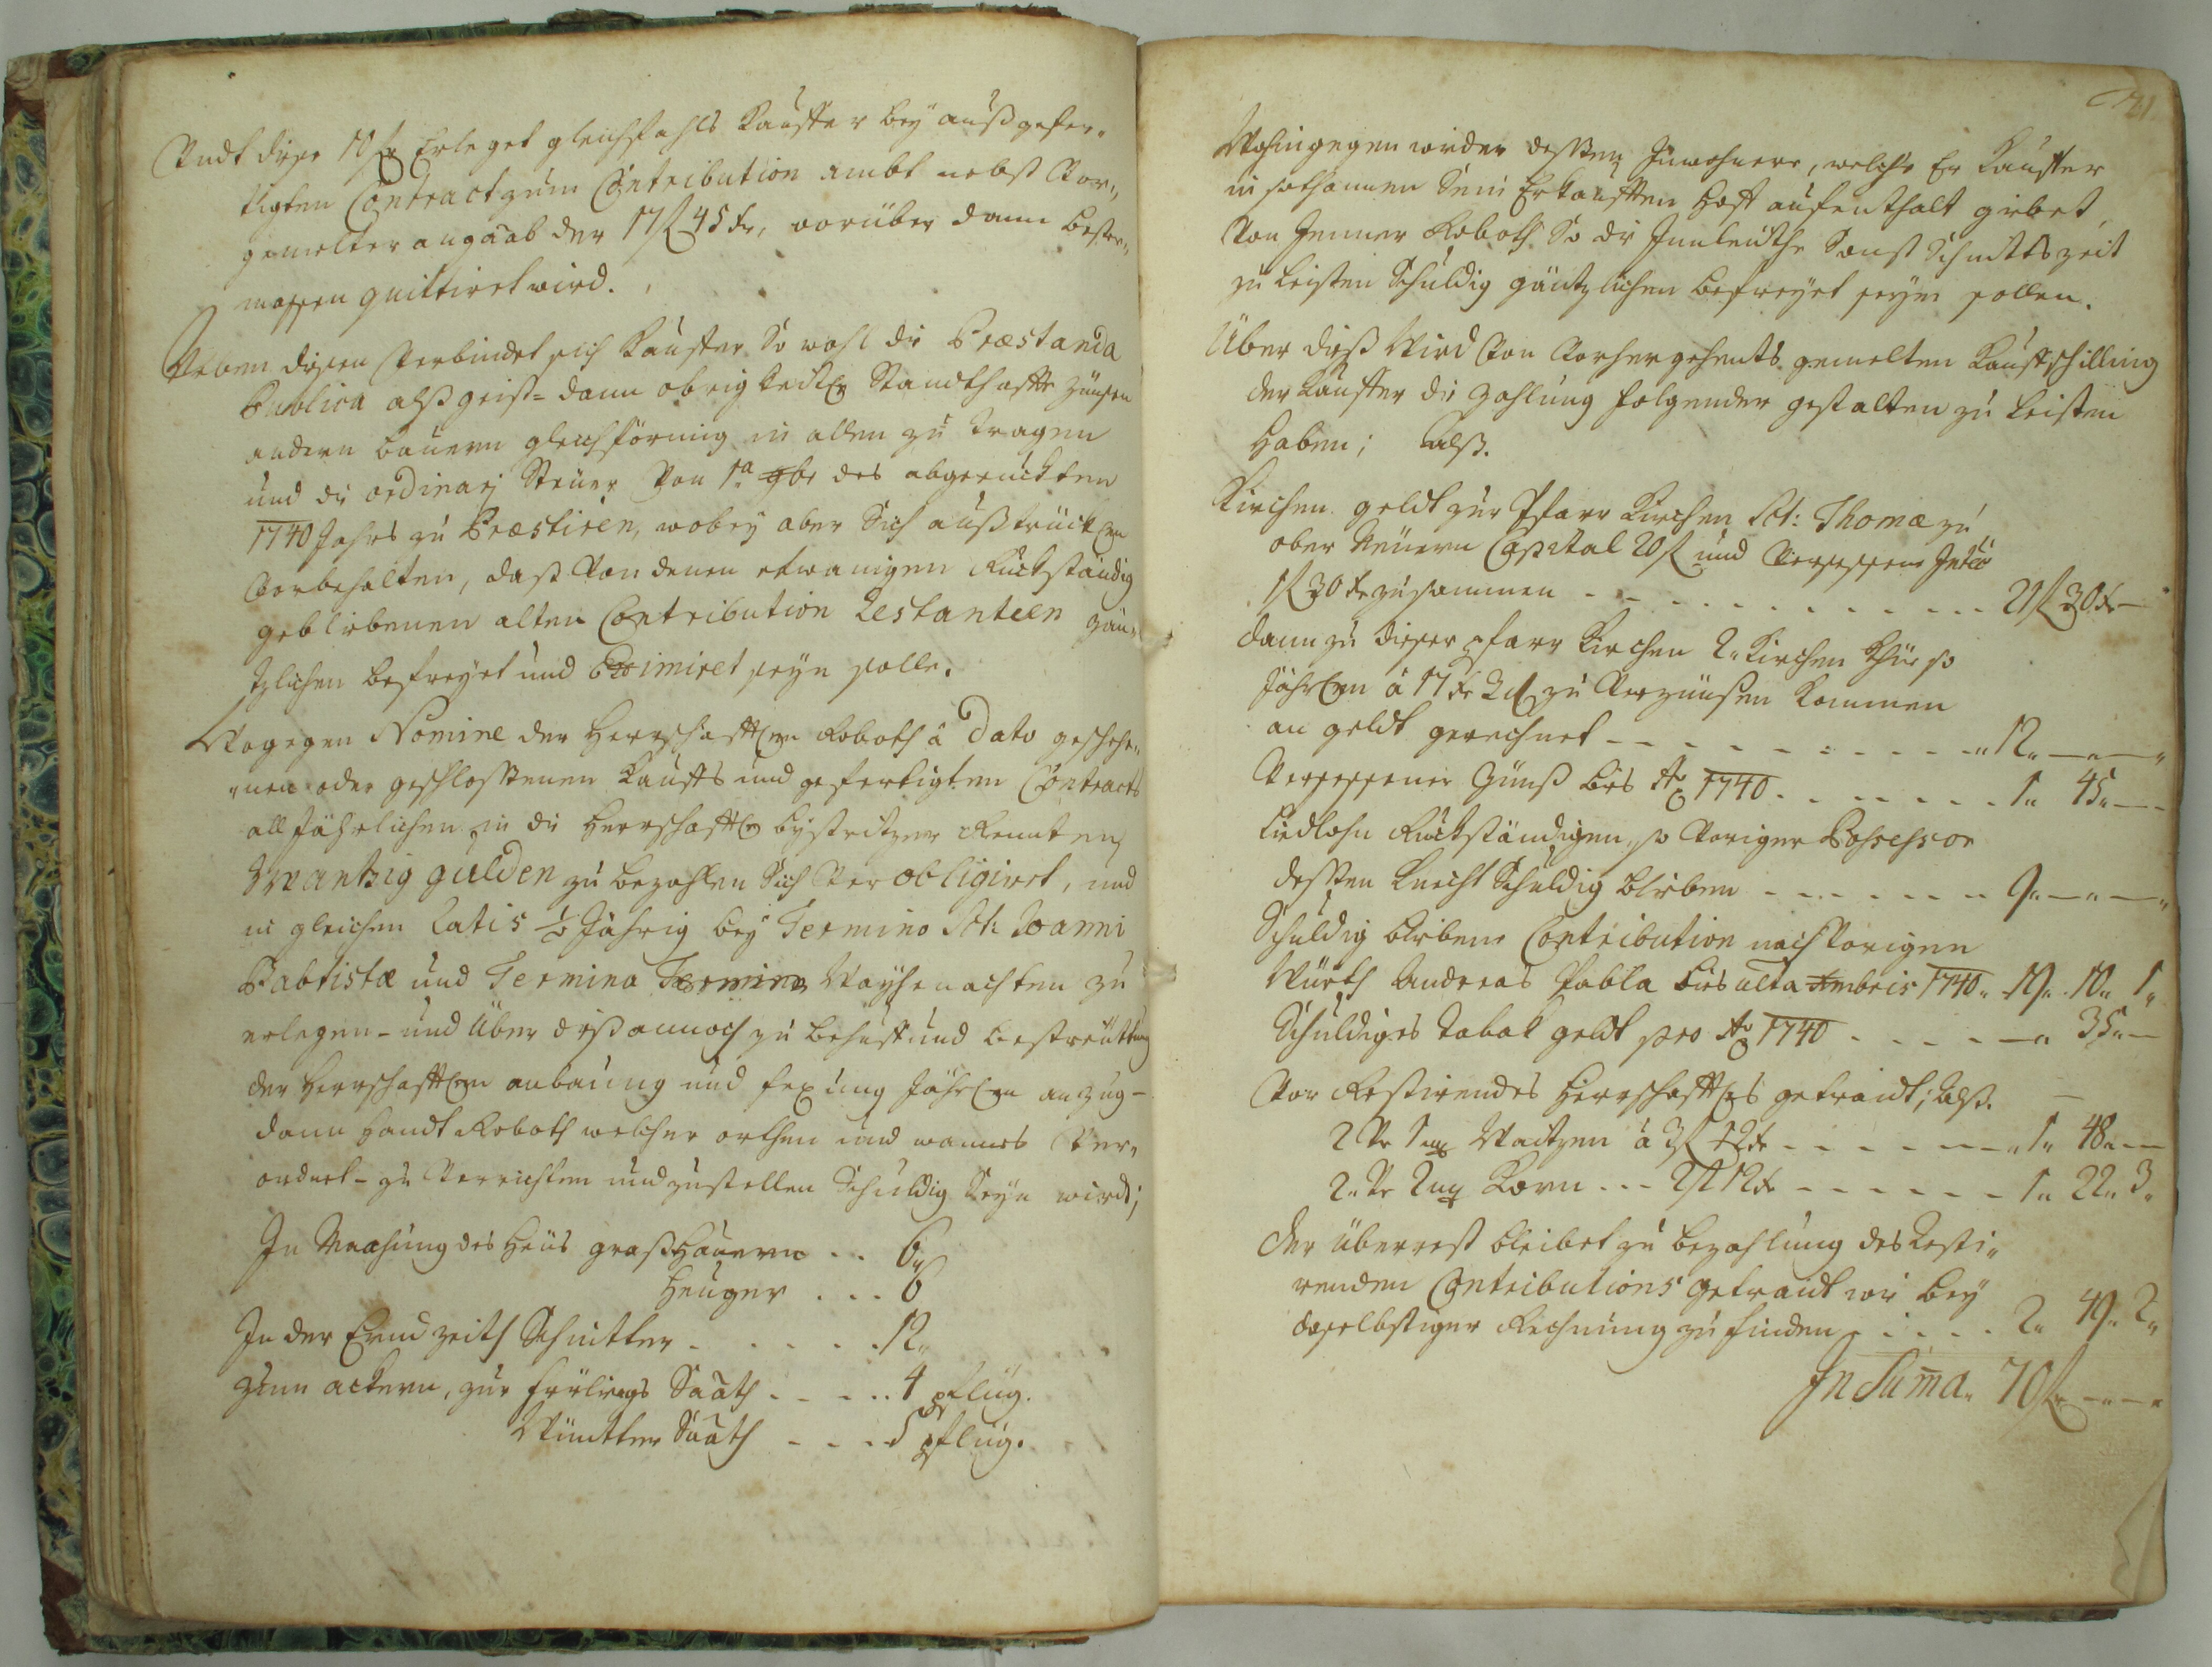 Undt diese 10 f Erleget gleichfahls Kauffer bey außgefer-
tigten Contract zum Contribution ambt nebst Vor-
gemelter angaab der 17 f 45 kr, worüber dann bester-
massen quittiret wird.
Neben diesen Verbindet sich Kauffer So wohl die Præstanda
Publica alß geist= dann obrigkeitl Standthaffte Zünsen
andern bauern gleichförmig in allen zu Tragen
und die ordinarj Steuer Von 1a 9br des abgeruckten
1740 Jahrs zu Præstiren, wobey aber Sich außtrücklen
Vorbehalten, daß Von denen etwanigen Ruckständig
gebliebenen alten Contribution Restanteen gän-
tzlichen befreyet und Eximiret seyn solle.
Wogegen Nomine der Herrschafftlen Roboth à Dato geschehe-
nen oder geschlossenen Kauffs und gefertigten Contracts
all jährlichen in die Herrschafftl bystritzer Renten
Zwantzig gulden zu bezahlen Sich Ver obligiret, und
in gleichen Ratis 1/2 Jährig bey Termino Sti Joanni
Babtistæ und Termino Termino Wayhenachten zu
erlegen - und Über dißannoch zu behuff und bestreuttung
der Herrschafftlen anbauung und fexung Jährlen an Zug-
dann Handt Roboth welcher orthen und wannes Ver-
ordnet - zu Verrichten und zustellen Schuldig Seyn wird;
In Machung des Heüs graßHauern . . 6„
Heuger . . . 6
In der Ernd zeith Schnitter . . . . . 12„
Zum ackern, zur frülings Saath . . . . . 4 pflüg.
Wintter Saath - - . . 5 pflüg.
Wohingegen wieder dessen Inwohnere, welche Er Kauffer
in sothannen Sein Erkaufften Hoff aufenthalt giebet
Von Jenner Roboth So die Innleuthe Sonst Schnittszeit
zu leisten Schuldig gäntzlichen befreyet seyn sollen.
Über dieß Wird Von Vorhergehents gemelten Kauffschilling
der Kauffer die Zahlung folgender gestalten zu leisten
Haben; alß.
Kirchen geldt zur Pfarr Kirchen Sti: Thomæ zu
ober Neüern Capital 20 f und Versessene Inter
1 f 30 kr zusammen . . . . . . 21 f 30 kr —
dann zu dieser pfarr Kirchen 2„ Kirchen Khüe so
Jährlen à 17 kr 3 zu Verzünßen Kommen
an geldt gerechnet - - - . . . . . „12„ — „ — „
Versessener Zünß bis Ao 1740 . . . . . . 1„ 45„ —
Liedlohn Ruckständigen, so Voriger Possessor
dessen Knecht Schuldig blieben - - . . . . 9„ — „ — „
Schuldig blibene Contribution nach Vorigen
Würth Andreas Pabla bis ulta Xmbris 1740„ 19„ 10„ 1„
Schuldiges Tabak geldt pro Ao 1740 . . . . — „ 35„ —
Vor Restirendes Herrschafftles getraidt; Alß.
Waitzen à 3 f 12 kr - - - - - - - „ 1„ 48„ —
Korn . . . 2 f 12 kr - - - - - - 1„ 22„ 3„
Der überrest bleibet zu bezahlung des Resti-
renden Contributions getraidt wie bey
daselbstiger Rechnung zu finden . . . . 2„ 49„ 2„
In Suma„ 70 f — „ — „